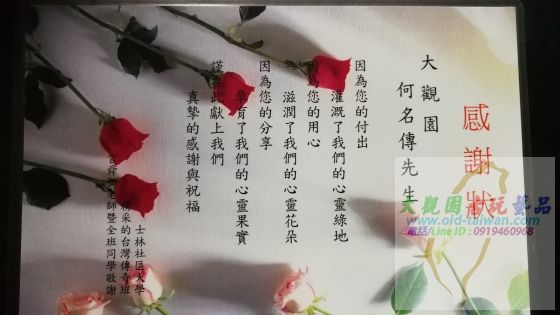 感謝狀
大觀園
何名傳先生
因為您的付出
灌溉了我們的心靈綠地
因為您的用心
滋潤了我們的心靈花朵
因為您的分享
孕育了我們的心靈果實
謹在此獻上我們
真摯的感謝與祝福
士林社區大學
采的台灣傳奇班
師暨全班同學敬謝
大觀園古玩藝品
www.old-taiwan.com
電話/Line ID : 0919460968